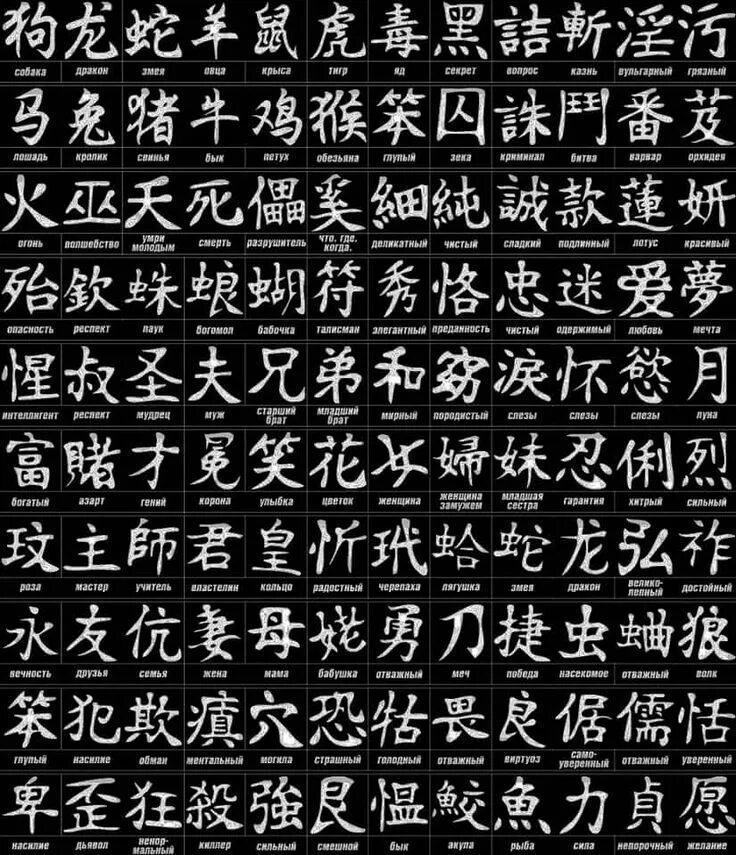 狗 龙 蛇 羊 鼠 虎 毒 黑 詰 斬 淫 污
собака дракон змея овца крыса тигр яд секрет вопрос казнь вульгарный грязный
马 兔 猪 牛 鸡 猴 笨 囚 誅 鬥 番 芨
лошадь кролик свинья бык петух обезьяна глупый зека криминал битва варвар орхидея
火 巫 夭 死 儡 奚 細 純 誠 款 蓮 妍
огонь волшебство умри молодым смерть разрушитель что. где. когда. деликатный чистый сладкий подлинный лотус красивый
殆 欽 蛛 蜋 蝴 符 秀 恪 忠 迷 爱 夢
опасность респект паук богомол бабочка талисман элегантный преданность чистый одержимый любовь мечта
惺 叔 圣 夫 兄 弟 和 窈 淚 怀 慾 月
интеллигент респект мудрец муж старший брат младший брат мирный породистый слезы слезы слезы луна
富 赌 才 冕 笑 花 女 婦 妹 忍 俐 烈
богатый азарт гений корона улыбка цветок женщина женщина замужем младшая сестра гарантия хитрый сильный
玟 主 師 君 皇 忻 玳 蛤 蛇 龙 弘 祚
роза мастер учитель властелин кольцо радостный черепаха лягушка змея дракон велико-лепный достойный
永 友 伉 妻 母 姥 勇 刀 捷 虫 蛐 狼
вечность друзья семья жена мама бабушка отважный меч победа насекомое отважный волк
笨 犯 欺 癀 穴 恐 牯 畏 良 倨 儒 恬
глупый насилие обман ментальный могила страшный голодный отважный виртуоз само-уверенный отважный уверенный
卑 歪 狂 殺 強 艮 愠 鮫 魚 力 貞 愿
насилие дьявол ненор-мальный киллер сильный смешной бык акула рыба сила непорочный желание